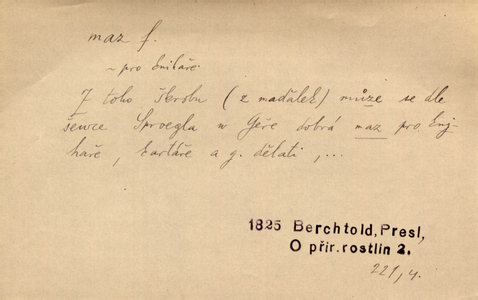 maz f.
~ pro knihaře
Z toho škrobu (z maďalek) může se dle
ševce Sprvegla w Geře dobrá maz pro knj-
haře, kartáře a g. dělati, ...
1825 Berchtold, Presl,
O přír. rostlin 2.
221, 4.